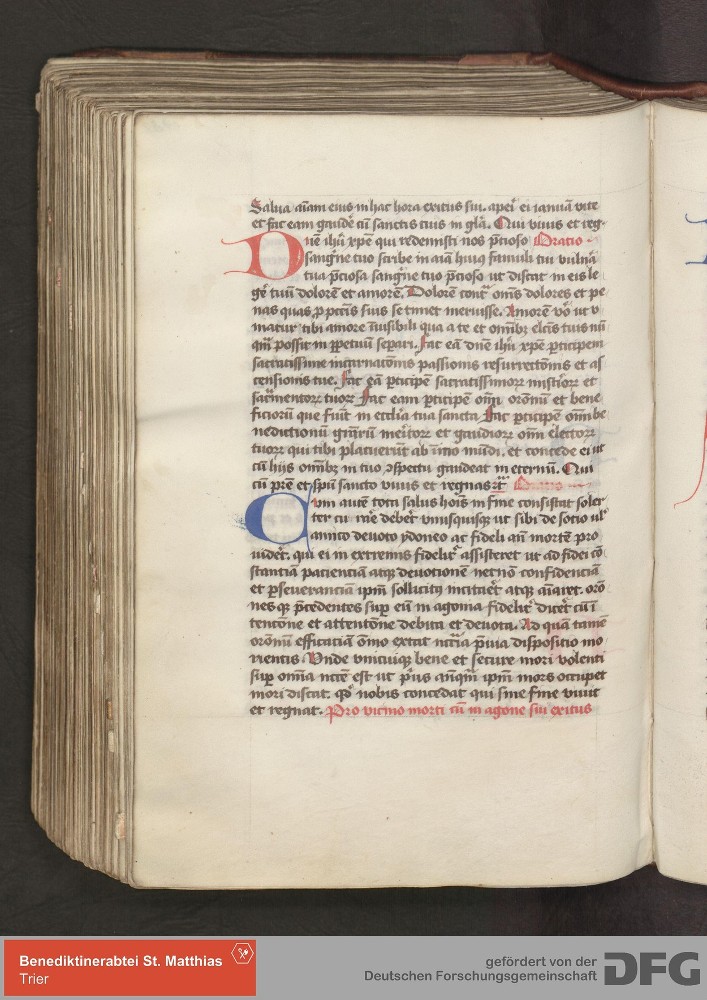 Salua aīam eius in hac hora exitus sui. aperi ei ianuā vite
et fac eam gaudē cū sanctis tuis in glā. Qui viuis et reg-
Dnē ihū xpē qui redemisti nos p̄cioso Oratio
sangne tuo scribe in aīā huiꝰ famuli tui vulnā
tua p̄ciosa sangne tuo p̄cioso ut discat in eis le
gē tuū dolorē et amorē. Dolorem cont omēs dolores et pe
nas quas p pctis suis se timet meruisse. Amorē vo ut v
niatur tibi amore īuisibili qua a te et omībꝫ elcis tuis nū
qm̄ possit in ppetuū separi. fac eā dnē ihū xpē pticipem
sacratissime incarnatōnis passionis resurrectōnis et as
censionis tue. fac eā pticipē sacratissimoꝝ misterioꝝ et
sacramentoꝝ tuoꝝ fac eam pticipē omī orōnū et bene
ficiorū que fiūt in ecclia tua sancta fac pticipē omī be
nedictionū graꝝ meritoꝝ et gaudioꝝ omī electoꝝ
tuoꝝ qui tibi placuerūt ab initio mūdi. et concede ei ut
cū hijs omībꝫ in tuo ꝯspectu gaudeat in eternū. Qui
cū prē et spū sancto viuis et regnas Oratio
Cum autē toti salus hoīs in fine consistat soler
ter cu rāe debet vnusquisqꝫ ut sibi de socio ul
amico deuoto ydoneo ac fideli an̄ mortē pro
uidet. qui ei in extremis fidelit assisteret ut ad fidei cō
stantiā pacienciā atqꝫ deuotionē necnō confidenciā
et pseueranciā ipm̄ sollicitꝰ incitaēt atqꝫ aīaret. orō
nes qꝫ p̄cedentes sup eū in agonia fidelit dicēt cū ī
tentōne et attentōne debita et deuota. Ad quā tamē
orōnū efficaciā omō extat nccria p̄uia dispositio mo
rientis Vnde vnicuiqꝫ bene et secure mori volenti
sup omīa nccē est ut pꝰus an̄qm̄ ipm̄ mors occupet
mori discat. qd nobis concedat qui sine fine viuit
et regnat. Pro vicino morti cū in agone sui exitus
Benediktinerabtei St. Matthias
Trier
gefördert von der
Deutschen Forschungsgemeinschaft
DFG